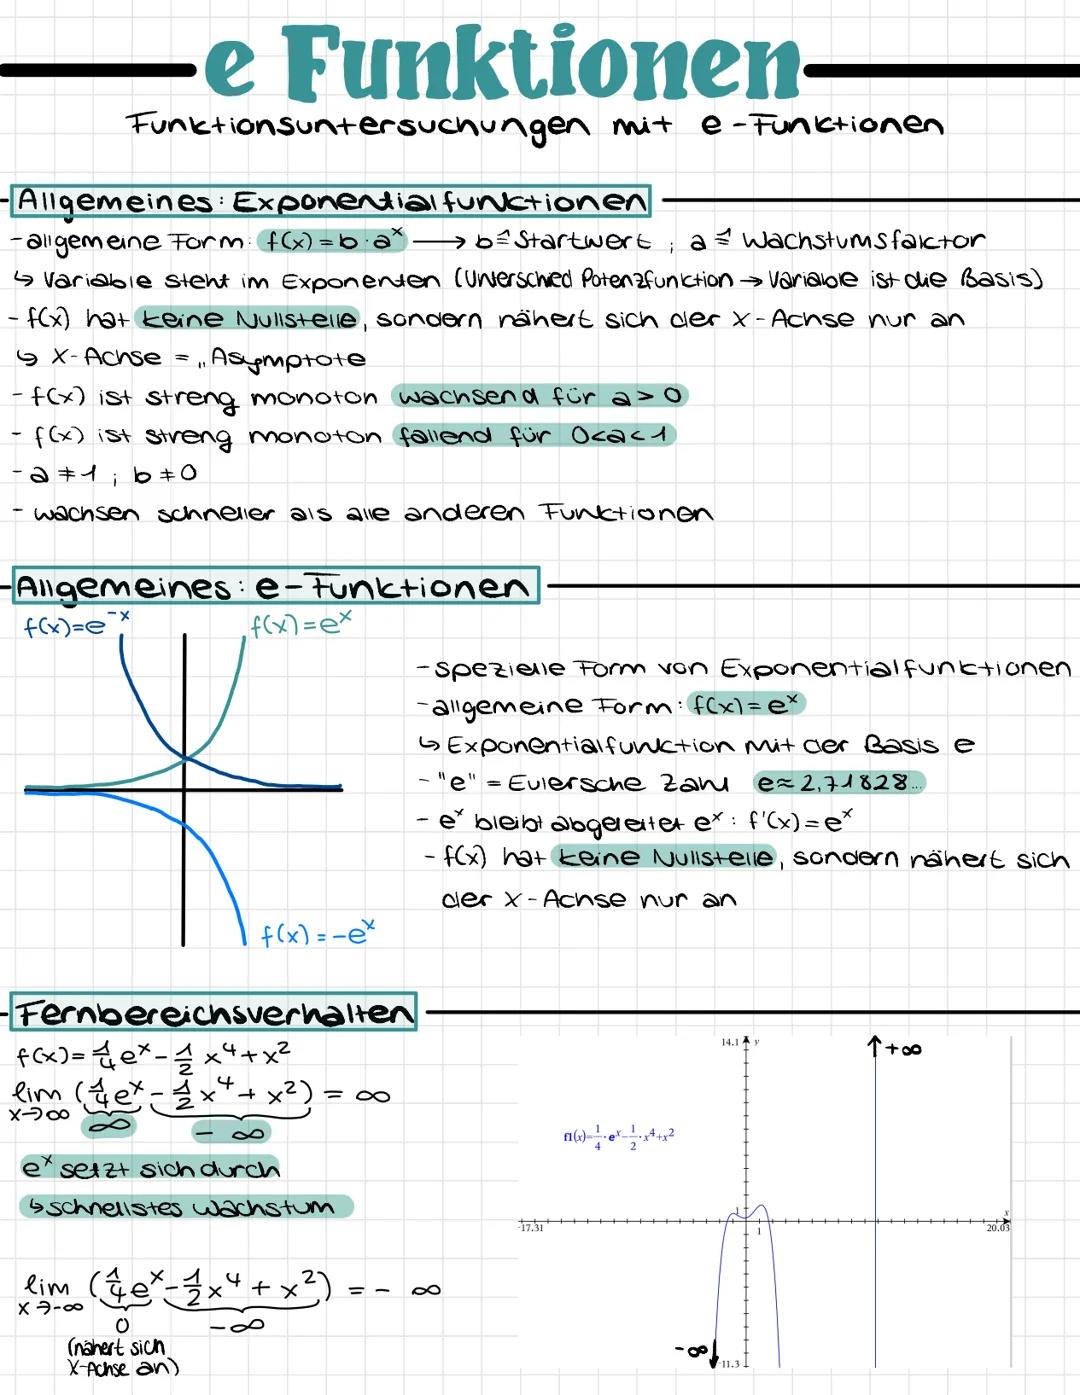 e Funktionen
Funktionsuntersuchungen mit e-Funktionen
Allgemeines: Exponentialfunktionen
- allgemeine Form: f(x) = b · aˣ → b ≙ Startwert ; a ≙ Wachstumsfaktor
↳ Variable steht im Exponenten (Unterschied Potenzfunktion → Variable ist die Basis)
- f(x) hat keine Nullstelle, sondern nähert sich der x-Achse nur an
↳ x-Achse = „Asymptote
- f(x) ist streng monoton wachsend für a > 0
- f(x) ist streng monoton fallend für 0<a<1
- a ≠ 1 ; b ≠ 0
- wachsen schneller als alle anderen Funktionen
Allgemeines: e-Funktionen
f(x)=e⁻ˣ
f(x)=eˣ
- spezielle Form von Exponentialfunktionen
- allgemeine Form: f(x)=eˣ
↳ Exponentialfunktion mit der Basis e
- "e" = Eulersche Zahl e≈2,71828...
- eˣ bleibt abgeleitet eˣ: f'(x)=eˣ
- f(x) hat keine Nullstelle, sondern nähert sich
der x-Achse nur an
f(x)=-eˣ
Fernbereichsverhalten
f(x)= 1/4 eˣ - 1/2 x⁴ + x²
lim x→∞ (1/4 eˣ - 1/2 x⁴ + x²) = ∞
∞ -∞
eˣ setzt sich durch
↳ schnellstes Wachstum
lim x→-∞ (1/4 eˣ - 1/2 x⁴ + x²) = -∞
0 -∞
(nähert sich
x-Achse an)
14.1 y
+∞
f1(x)=1/4·eˣ-1/2·x⁴+x²
1
x
-17.31
1
20.03
-∞
-11.3